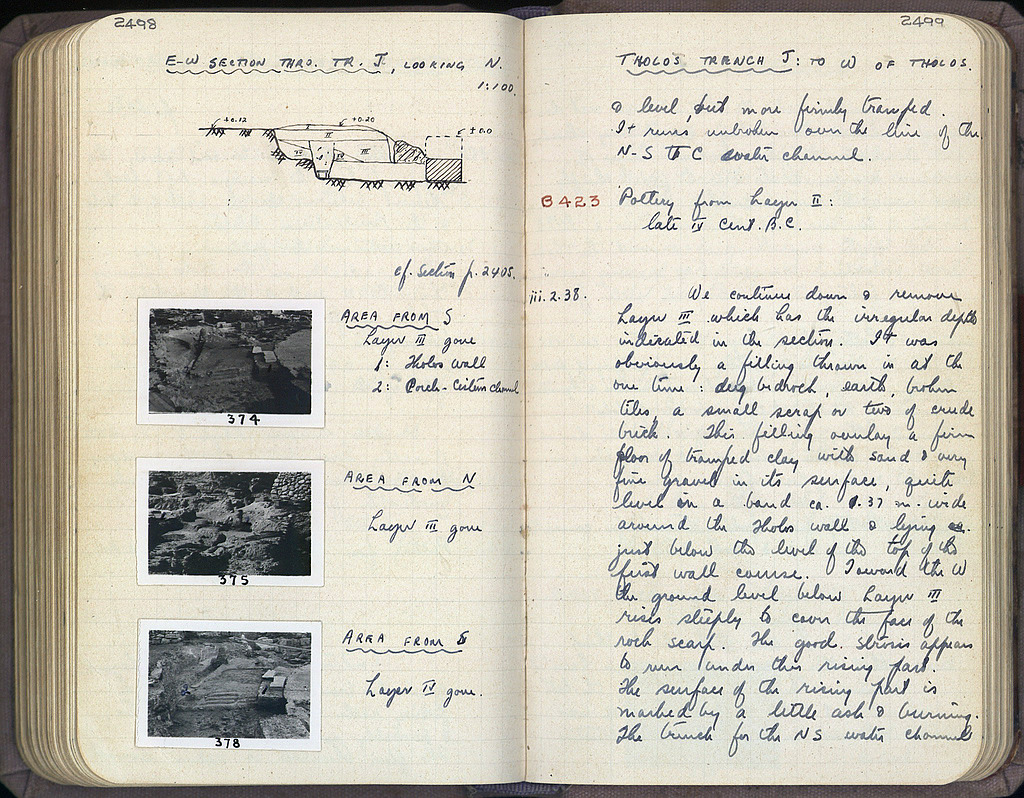 2498
E-W SECTION THRO. TR. J, LOOKING N.
1:100.
+0.12
+0.20
±0.0
I
II
III
IV
cf. section p. 2405.
AREA FROM S
Layer III gone
1: Tholos wall
2: Porch-Cistern channel
374
AREA FROM N
Layer III gone
375
AREA FROM S
Layer IV gone.
2
378
2499
THOLOS TRENCH J: TO W OF THOLOS.
& level, but more firmly tramped.
It runs unbroken over the line of the
N-S TC water channel.
B423 Pottery from Layer II:
late IV cent. B.C.
iii.2.38. We continue down & remove
Layer III which has the irregular depth
indicated in the section. It was
obviously a filling thrown in at the
one time: dug bedrock, earth, broken
tiles, a small scrap or two of crude
brick. This filling overlay a firm
floor of tramped clay with sand & very
fine gravel in its surface, quite
level in a band ca. 1.37 m. wide
around the Tholos wall & lying
just below the level of the top of the
first wall course. Toward the W
the ground level below Layer III
rises steeply to cover the face of the
rock scarp. The good strosis appears
to run under this rising part.
The surface of the rising part is
marked by a little ash & burning.
The trench for the NS water channel